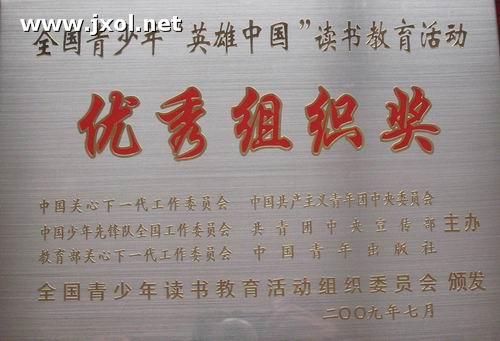 www.jxol.net
全国青少年“英雄中国”读书教育活动
优秀组织奖
中国关心下一代工作委员会 中国共产主义青年团中央委员会
中国少年先锋队全国工作委员会 共青团中央宣传部 主办
教育部关心下一代工作委员会 中国青年出版社
全国青少年读书教育活动组织委员会 颁发
二〇〇九年七月